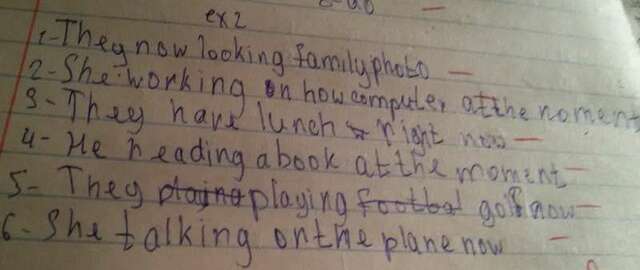 ex 2
1-They now looking family photo
2-She working on how computer at the noment
3-They have lunch right now
4-He heading a book at the moment
5-They playing golf now
6-She talking on the plane now